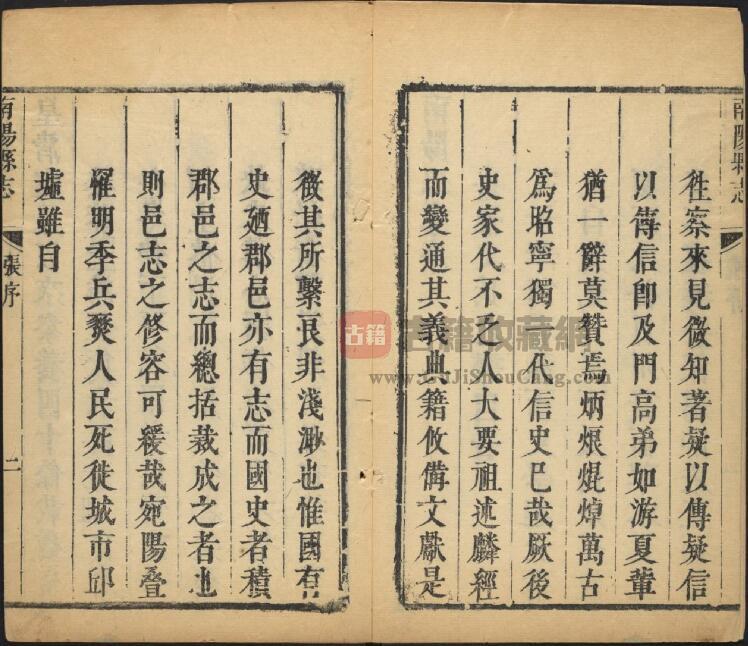 南陽縣志
徃察來見微知著疑以傳疑信
以傳信卽及門高弟如游夏輩
猶一辭莫贊焉炳烺焜焯萬古
爲昭寧獨一代信史巳哉厥後
史家代不乏人大要祖述麟經
而變通其義典籍攸備文獻是
徵其所繫良非淺渺也惟國有
史廼郡邑亦有志而國史者積
郡邑之志而總括裁成之者也
則邑志之修容可緩哉宛陽叠
罹明季兵燹人民死徙城市邱
墟雖自
南陽縣志
張序
二
古籍
古籍收藏網
www.GuJiShouCang.com